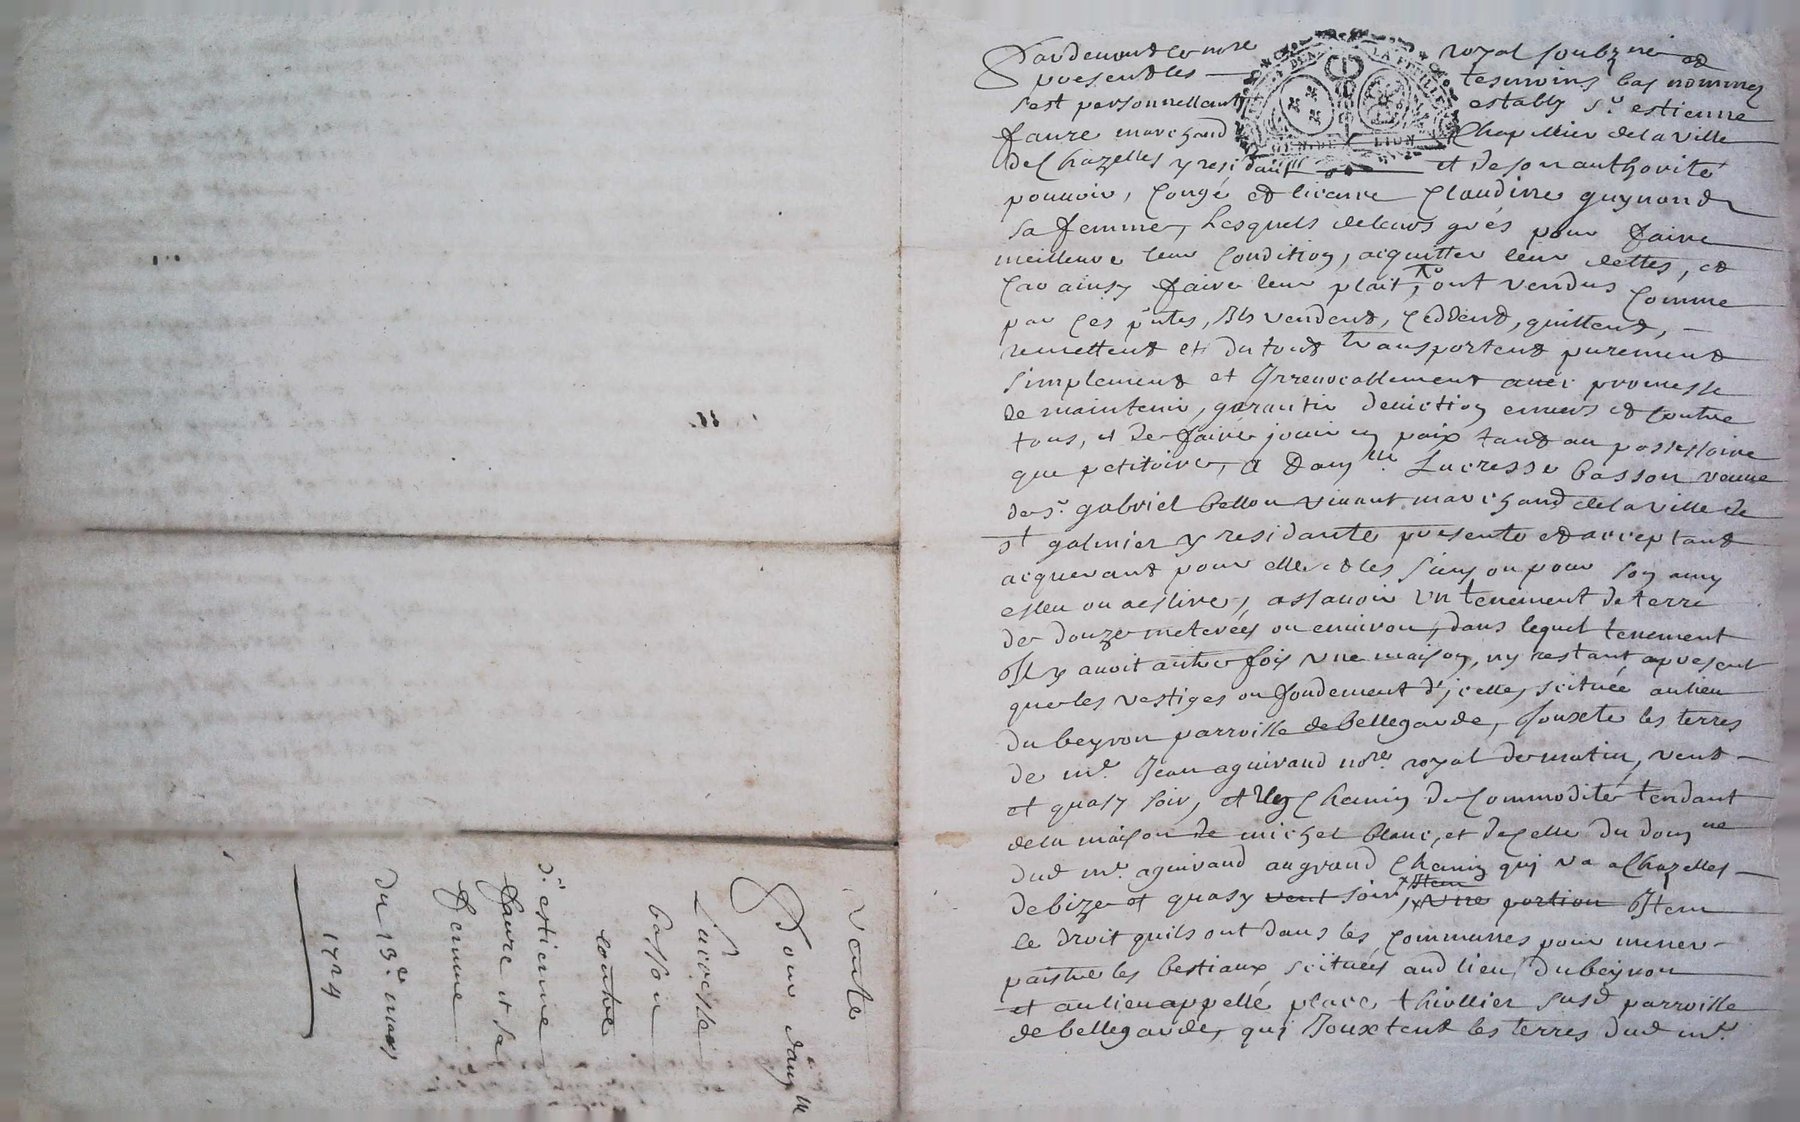 Vente
Pour dam.lle
Lucresse
basson
contre
S.r estienne
faure et sa
femme
du 13.e mars
1724
Pardevant le no.re royal soubz.né et
presentz les tesmoins bas nommez
s'est personnellam.t estably s.r estienne
faure marchand Chapellier de la ville
de Chazelles y residant et de son authorité
pouvoir, congé et licence Claudine guynand
sa femme, Lesquels de leurs grés pour faire
meilleure leur Condition, acquitter leur dettes, et
Car ainsy faire leur plait, ont vendus Comme
par Ces p.ntes, Ils vendent, Ceddent, quittent,
remettent et du tout transportent purement
simplement et Irrevocablement avec promesse
de maintenir, garantir deviction envers et Contre
tous, et de faire jouir en paix tant au possessoire
que petitoire, a dam.lle Lucresse basson veuve
de s.r gabriel bellon vivant marchand de la ville de
s.t galmier y residante presente et acceptant
acquerant pour elle et les siens ou pour son amy
esleu ou a eslire, assavoir Un tenement de terre
de douze meterées ou environ, dans lequel tenement
Il y avoit autre fois une maison, ny restant a present
que les vestiges ou fondement d'jcelle, scituée au lieu
du beyron parroisse de bellegarde, Jouxte les terres
de m.e Jean aguiraud no.re royal de matin, vent
et quasy soir, et Chemin de Commodité tendant
de la maison de michel blanc, et de celle du dom.ne
dud m.e aguiraud au grand Chemin quj va a Chazelles
de bize et quasy vent soir, Item une portion Item
le droit quils ont dans les Communes pour mener
paistre les bestiaux scitués aud lieu du beyron
et au lieu appellé place thiollier susd parroisse
de bellegarde, quj Jouxtent les terres dud m.e
GEN. DE LION
LA FEUILLE